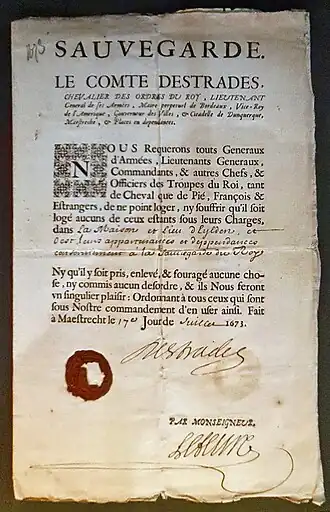 1673
SAUVEGARDE.
LE COMTE DESTRADES,
CHEVALIER DES ORDRES DU ROY, LIEUTENANT
General de ses Armées, Maire perpetuel de Bordeaux, Vice-Roy
de l'Amerique, Gouverneur des Villes, & Citadelle de Dunquerque,
Maestricht, & Places en dependances.
NOUS Requerons touts Generaux
d'Armées, Lieutenants Generaux,
Commandants, & autres Chefs, &
Officiers des Troupes du Roi, tant
de Cheval que de Pié, François &
Estrangers, de ne point loger, ny souffrir qu'il soit
logé aucuns de ceux estants sous leurs Charges,
dans La Maison et Lieu d'Eylden et
leurs appartenances et dependances
conformement a la Sauvegarde du Roy
Ny qu'il y soit pris, enlevé, & fouragé aucune cho-
se, ny commis aucun desordre, & ils Nous feront
vn singulier plaisir: Ordonnant à tous ceux qui sont
sous Nostre commandement d'en user ainsi. Fait
à Maestrecht le 17e Jour de Juillet 1673.
Destrades
PAR MONSEIGNEUR,